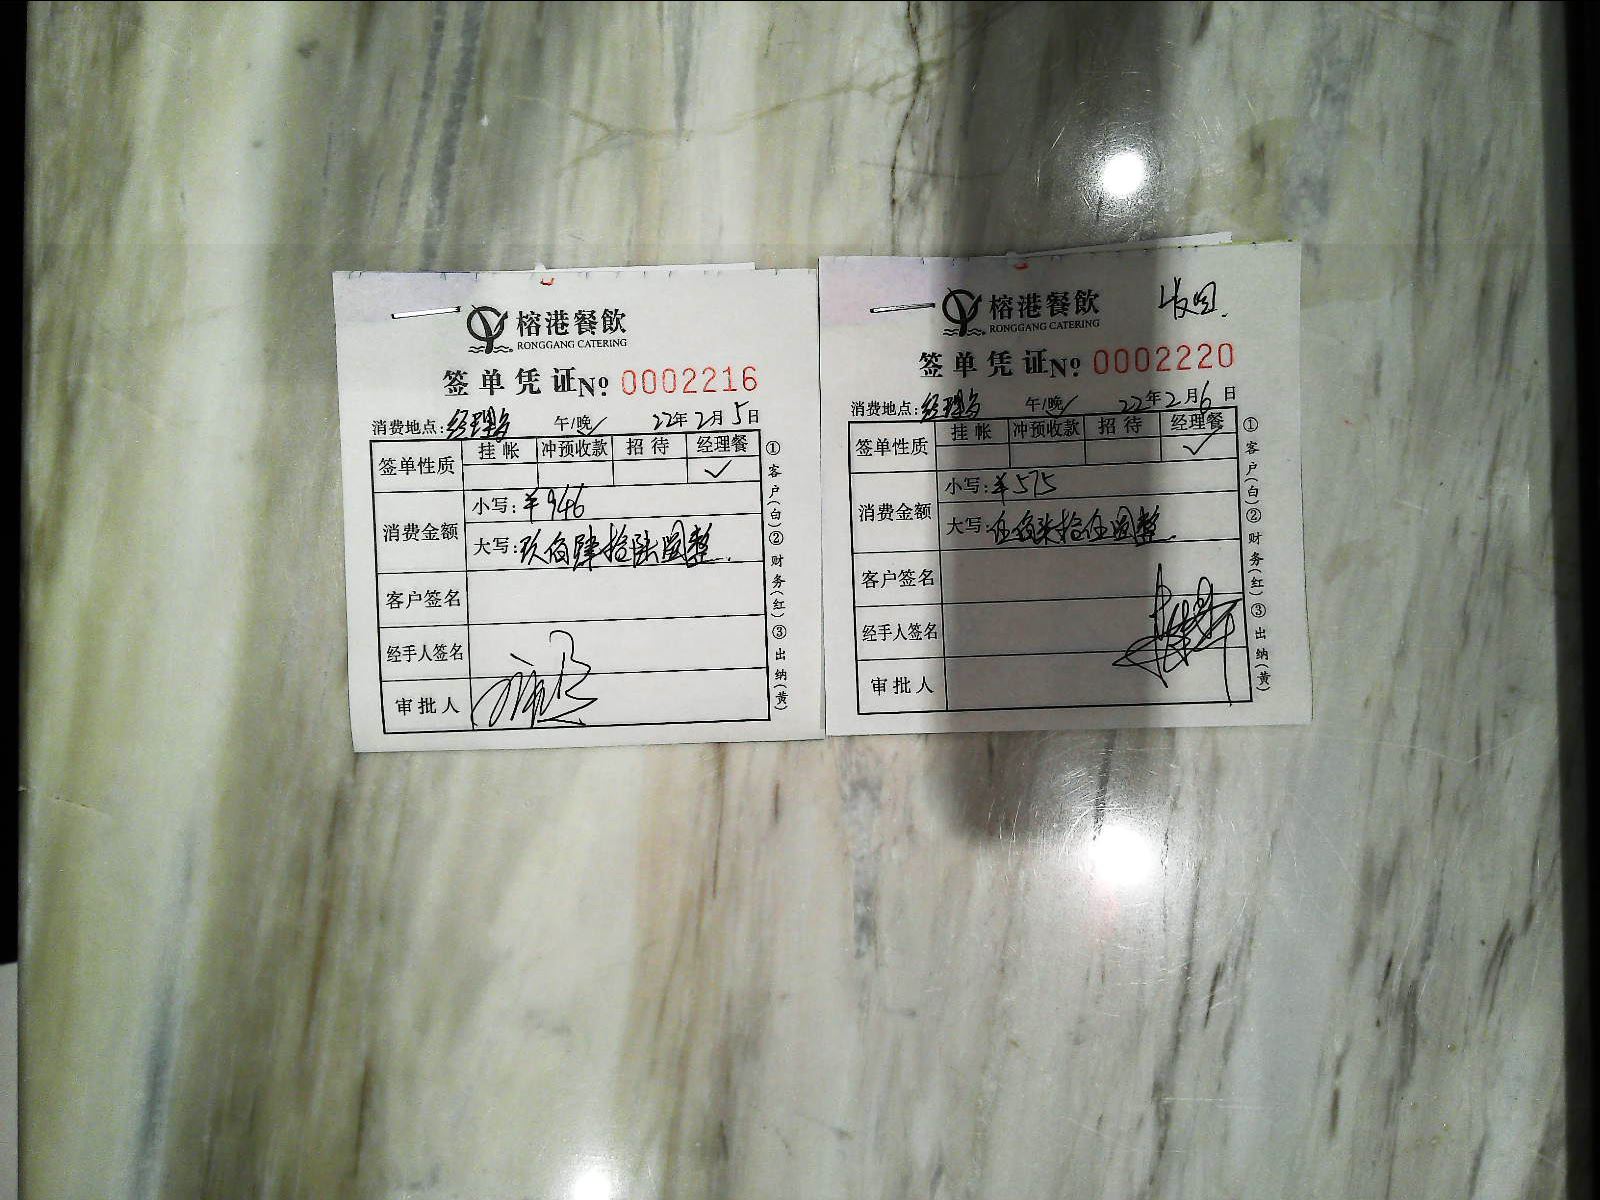 榕港餐飲
RONGGANG CATERING
签单凭证No. 0002216
消费地点: 经理 午/晚 22年2月5日
签单性质 挂帐 冲预收款 招待 经理餐
✓
消费金额
小写: ¥946
大写: 玖佰肆拾陆圆整.
客户签名
经手人签名
审批人
①客户(白)②财务(红)③出纳(黄)
榕港餐飲
RONGGANG CATERING
签单凭证No. 0002220
消费地点: 经理 午/晚 22年2月6日
签单性质 挂帐 冲预收款 招待 经理餐
✓
消费金额
小写: ¥575
大写: 伍佰柒拾伍圆整.
客户签名
经手人签名
审批人
①客户(白)②财务(红)③出纳(黄)